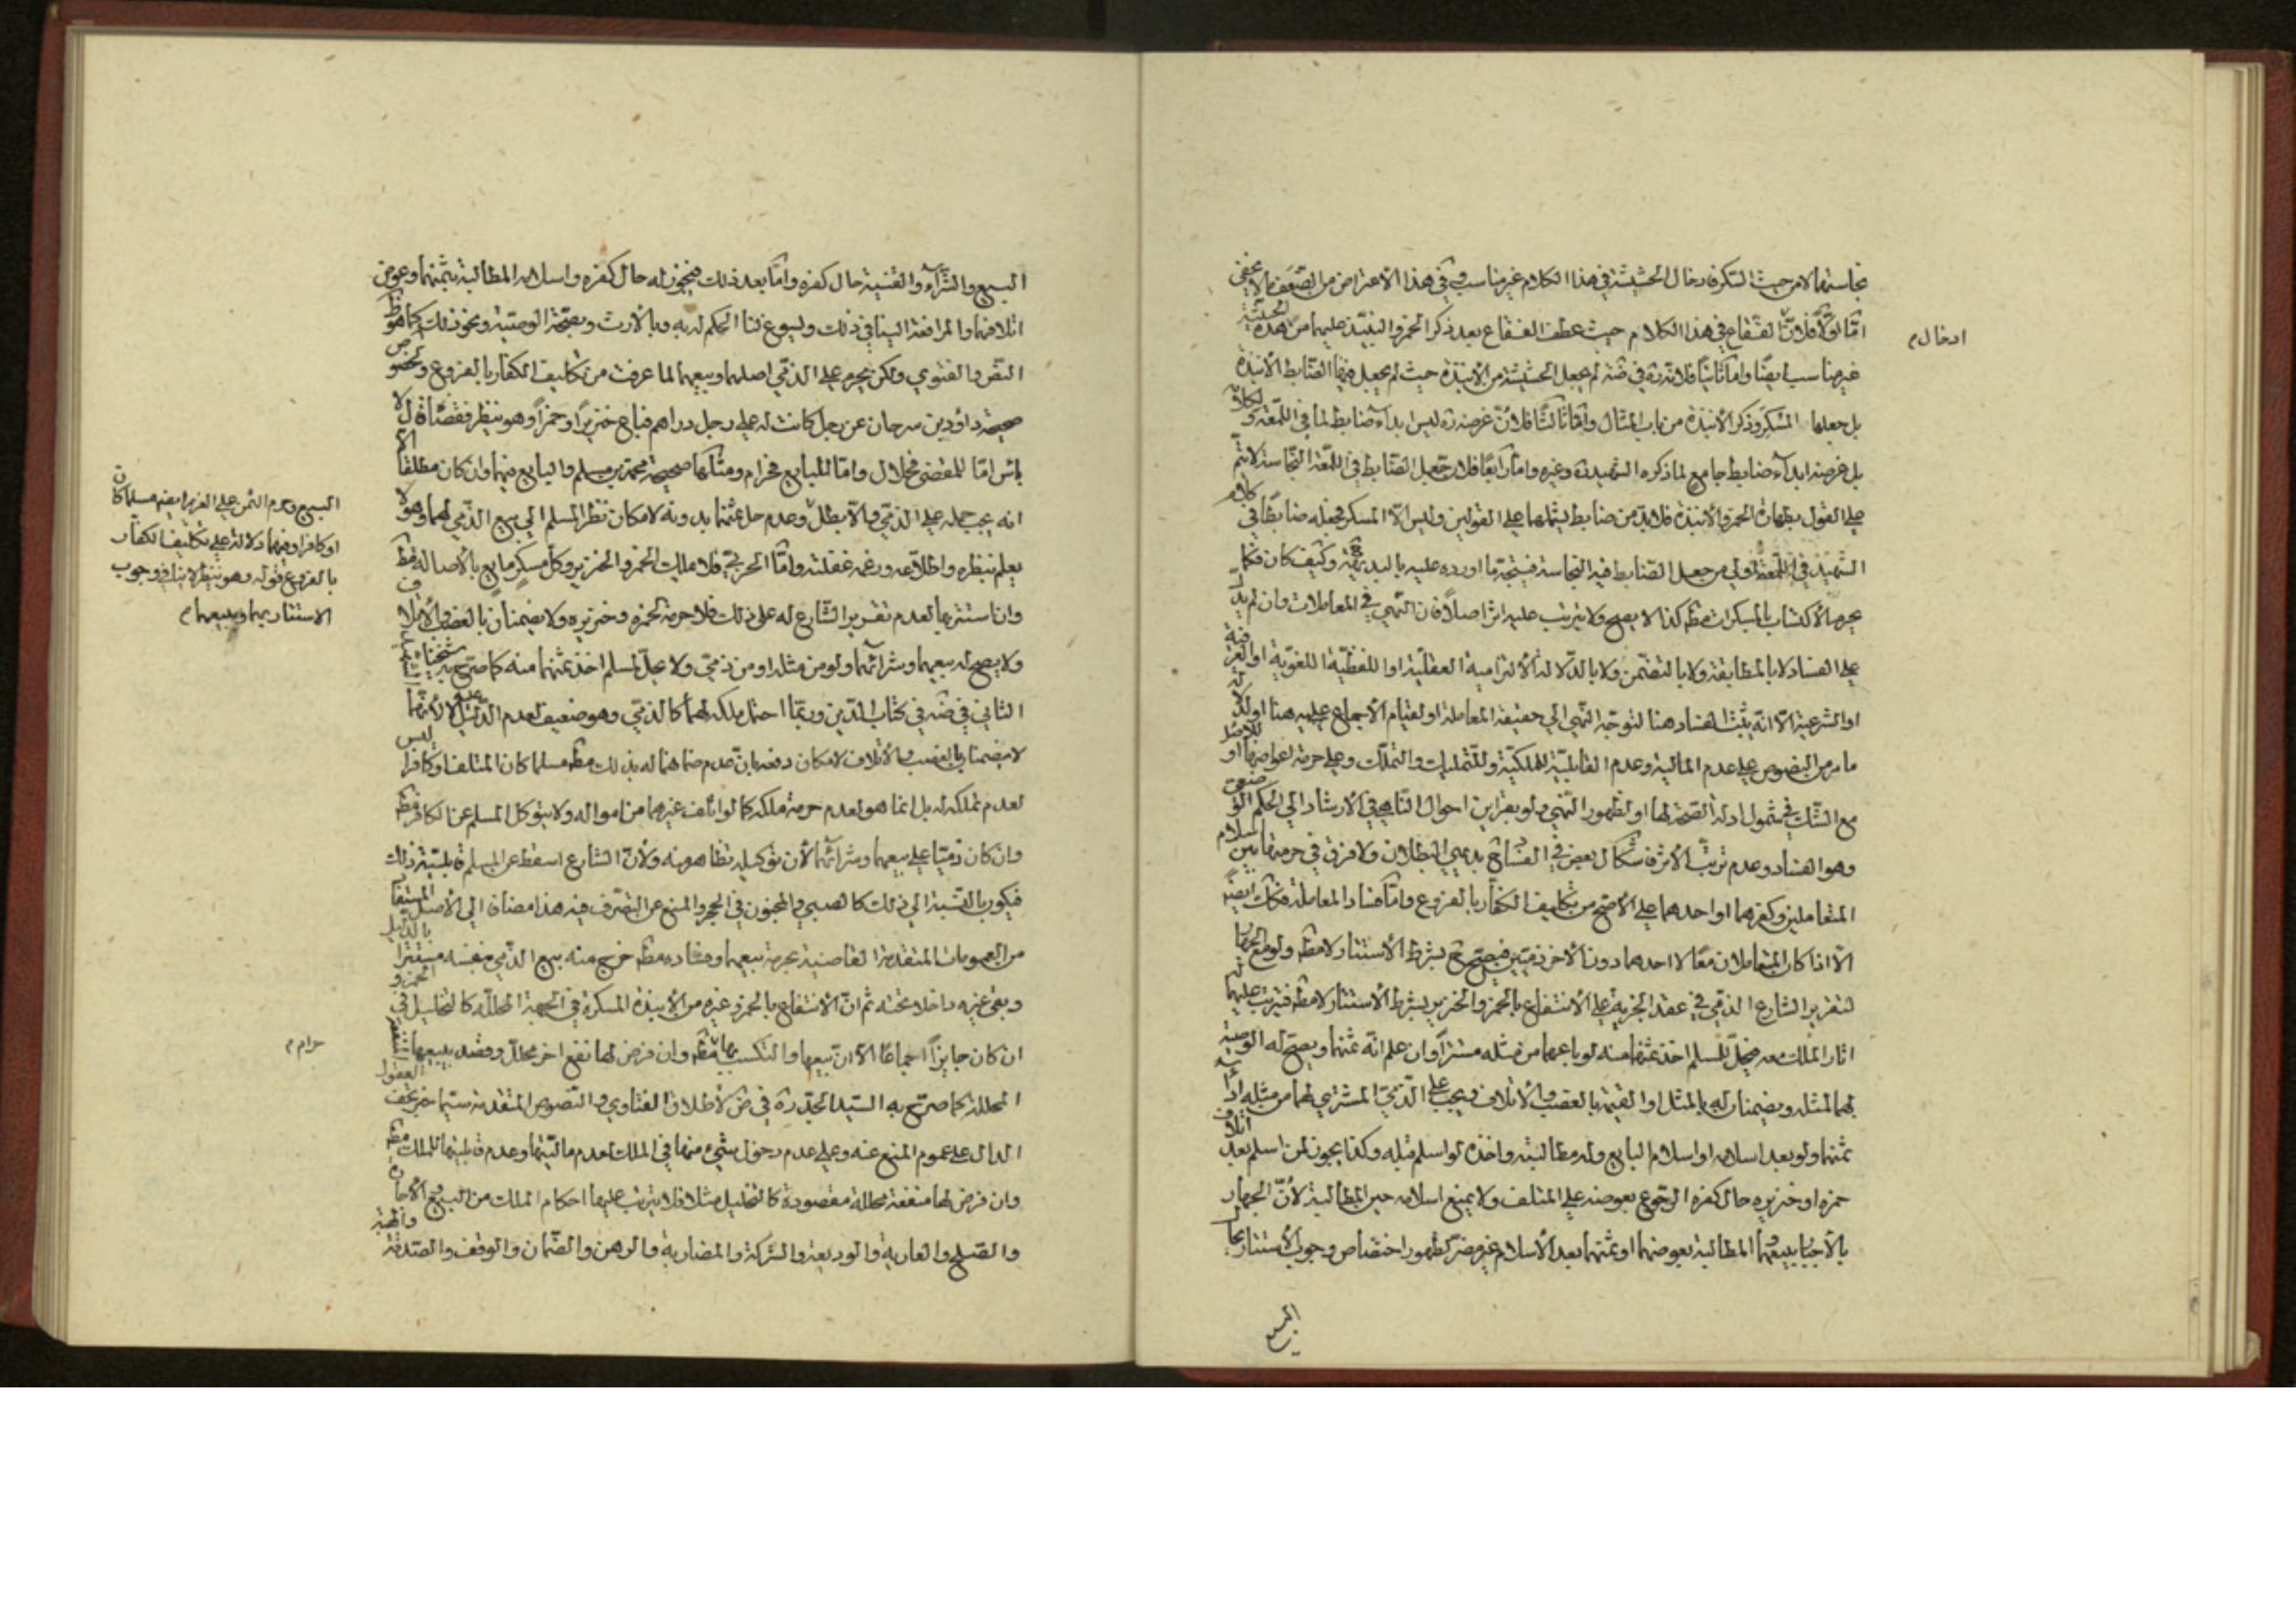 نجاستها لا من حيث السكر فادخال الحشيشة في هذا الكلام غير مناسب وفي هذا الاعتراض من الضعف ما لا يخفى
امّا اوّلا فلانّ الفقاع في هذا الكلام حيث عطف الفقاع بعد ذكر الخمر والنبيذ عليهما من هذه الحيثيّة
ادخال م
غير مناسب ايضًا وامّا ثانيًا فلانّه ره في ضه لم يجعل الحشيشة من الأنبذة حيث لم يجعل فيها الضابط الأنبذة
بل جعلها المسكر وذكر الأنبذة من باب المثال وامّا ثالثًا فلانّ غرضه ره ليس ابداء ضابط لما في اللمعة
بل غرضه ابداء ضابط جامع لما ذكره الشهيد ره وغيره وامّا رابعًا فلان جعل الضابط في اللمعة النجاسة لا يتمّ
على القول بطهارة الخمر والأنبذة فلابدّ من ضابط يشملها على القولين وليس الّا المسكر فجعله ضابطًا في كلام
الشهيد في اللمعة اولى من جعل الضابط فيه النجاسة فيتجه ما اورده عليه بالبديهة وكيف كان فكما
يحرم الأكتساب بالمسكرات مط كذا لا يصح ولا يترتب عليه اثر اصلًا فان النهي في المعاملات وان لم يدلّ
على الفساد لا بالمطابقة ولا بالتضمّن ولا بالدّلالة الألتزامية العقليّة او اللفظيّة اللغويّة او العرفيّة
او الشرعية الّا انّه يثبت الفساد هنا لتوجّه النهي الى حقيقة المعاملة او لقيام الأجماع عليه هنا او لدلالة
ما مر من النصوص على عدم المالية وعدم القابليّة للملكيّة وللتمليك والتملّك وعلى حرمة اعواضها او للأصل
مع الشّك في شمول ادلة الصّحة لها او لظهور النّهي ولو بقراين احوال النّاهي في الأرشاد الى الحكم الوضعي
وهو الفساد وعدم ترتّب الأثر فاشكال بعض في الفساد بديهي البطلان ولا فرق في حرمتها بين اسلام
المتعاملين وكفرهما او احدهما على الأصّح من تكليف الكفّار بالفروع وامّا فساد المعاملة فكك ايضًا
الّا اذا كان المتعاملان معًا لا احدهما دون الأخر ذمّيين فيصحّ بشرط الأستتار لا مط
لتقرير الشارع الذمّي في عقد الجزية على الأنتفاع بالخمر والخنزير بشرط الأستتار لا مط فيترتب عليهما
اثار الملك معه فيحلّ للمسلم اخذ ثمنهما منه لو باعهما من مثله مستترًا وان علم انّه ثمنهما ويصحّ له الوصية
بهما لمثله ويضمنان له بالمثل او القيمة بالغصب والأتلاف ويجب على الذّمّي المشتري لهما من مثله اداء
ثمنهما ولو بعد اسلامه او اسلام البايع وله مطالبته واخذه لو اسلم قبله وكذا يجوز لمن اسلم بعد اتلاف
خمره او خنزيره حال كفره الرجوع بعوضه على المتلف ولا يمنع اسلامه حين المطالبة لأنّ الجهار
بالأخبار ببيعهما والمطالبة بعوضهما او ثمنهما بعد الأسلام غير مضرّ لظهور اختصاص وجوب الأستتار بحال
البيع
البيع والشّراء والقنية حال كفره وامّا بعد ذلك فيجوز له حال كفره واسلامه المطالبة بثمنهما وعوض
اتلافهما والمرافعة الينا في ذلك ويسوغ لنا الحكم له به وبالأرث وبصحّة الوصيّة ونحو ذلك كما هو ظ
النصّ والفتوى ولكن يحرم على الذمّي اصلهما وبيعهما لما عرفت من تكليف الكفار بالفروع
صحيحة داود بن سرحان عن رجل كانت له على رجل دراهم فباع خنزيرًا او خمرًا وهو ينظر فقضاه قال لا
باس امّا للمقضى فحلال وامّا للبايع فحرام ومثلها صحيحة محمد بن مسلم والبايع فيهما وان كان مطلقا الّا
انه يجب حمله على الذمّي والّا بطل وعدم حل ثمنها بدونه لامكان نظر المسلم الى بيع الذمّي لهما وهو لا
يعلم بنظره واطلاعه وزعمه غفلته وامّا الحربيّ فلا يملك الخمر والخنزير وكلّ مسكر مايع بالأصالة مط
وان استتر بها لعدم تقرير الشّارع له على ذلك فلا حرمة لخمره وخنزيره ولا يضمنان بالغصب والأتلاف
ولا يصح له بيعهما وشرائهما ولو من مثله او من ذمّيّ ولا يحلّ للمسلم اخذ ثمنهما منه كما صرّح به شيخنا الشهيد
الثاني في ضه في كتاب الدّين وربّما احتمل ملكه لهما كالذمّيّ وهو ضعيف لعدم الدّليل عليه الّا انّهما
لا يضمنان بالغصب والأتلاف لامكان دفعه بان عدم ضمانهما له بذلك مط مسلما كان المتلف او كافرا ليس
لعدم تملكه له بل انما هو لعدم حرمة ملكه كما لو اتلف غيرهما من امواله ولا يتوكل المسلم عن الكافر مط
وان كان ذمّيّا على بيعهما وشرائهما لأن توكيله تظاهر منه ولأنّ الشارع اسقط عن المسلم قابليّة ذلك
فيكون بالنّسبة الى ذلك كالصبيّ والمجنون في الحجر والمنع عن التصّرف فيه هذا مضافا الى الأصل المستفاد
من العمومات المتقدّمة القاضية بحرمة بيعهما وفساده مط خرج منه بيع الذّمي بنفسه مستترا بالدّليل
وبقى غيره داخلا تحته ثم انّ الأنتفاع بالخمر وغيره من الأنبذة المسكرة في الجهة المحللّه كالتخليل في الخمر و
ان كان جايزًا اجماعًا الّا انّ بيعها والتكسب بها مط وان فرض لها نفع اخر محللّ وقصد ببيعها المنفعة
حرام م
المحللة كما صرّح به السّيد الجدّ ره في ض لأطلاق الفتاوى والنّصوص المتقدمة سيّما خبر تحف العقول
الدال على عموم المنع عنه وعلى عدم دخول شيء منها في الملك لعدم ماليّتها وعدم قابليتها للملك مط
وان فرض لها منفعة محللة مقصودة كالتخليل مثلا فلا يترتب عليها احكام الملك من البيع والأجارة
والصّلح والعارية والوديعة والشّركة والمضاربة والرهن والضّمان والوقف والصّدقة والهبة
البيع وحرم الثمن على الغريم ايضا مسلما كان
او كافرا وفيهما دلالة على تكليف الكفّار
بالفروع قوله وهو ينظر لا ينافي وجوب
الاستتار بهما وببيعهما م